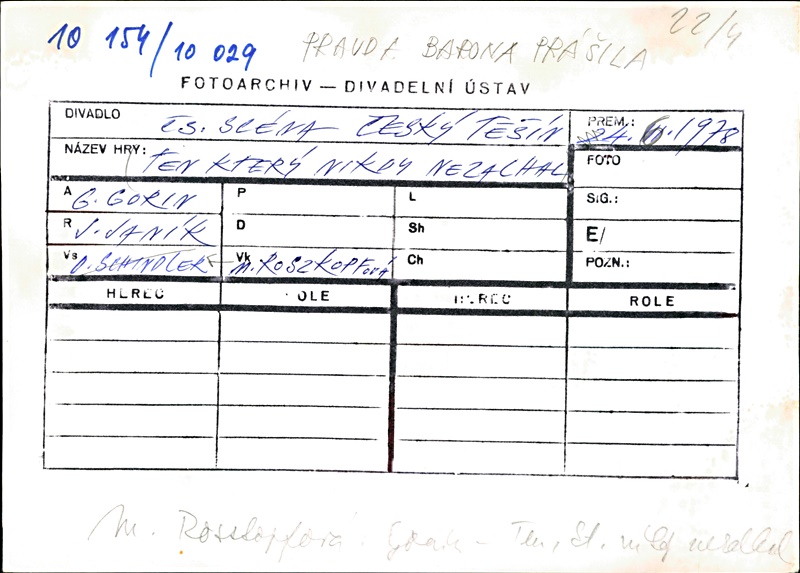 22/4
10 154/10 029 PRAVDA BARONA PRÁŠILA
FOTOARCHIV — DIVADELNÍ ÚSTAV
DIVADLO ČS. SCÉNA ČESKÝ TĚŠÍN PREM.: 24. 1978
NÁZEV HRY: TEN KTERÝ NIKDY NEZALHAL FOTO
A G. GORIN P L SIG.:
R J. JANÍK D Sh E/
Vs V. SCHINDLER Vk M. ROSZKOPFOVÁ Ch POZN.:
HEREC ROLE HEREC ROLE
M. Rosskopfová. Gorin – Ten, kt. nikdy nezalhal